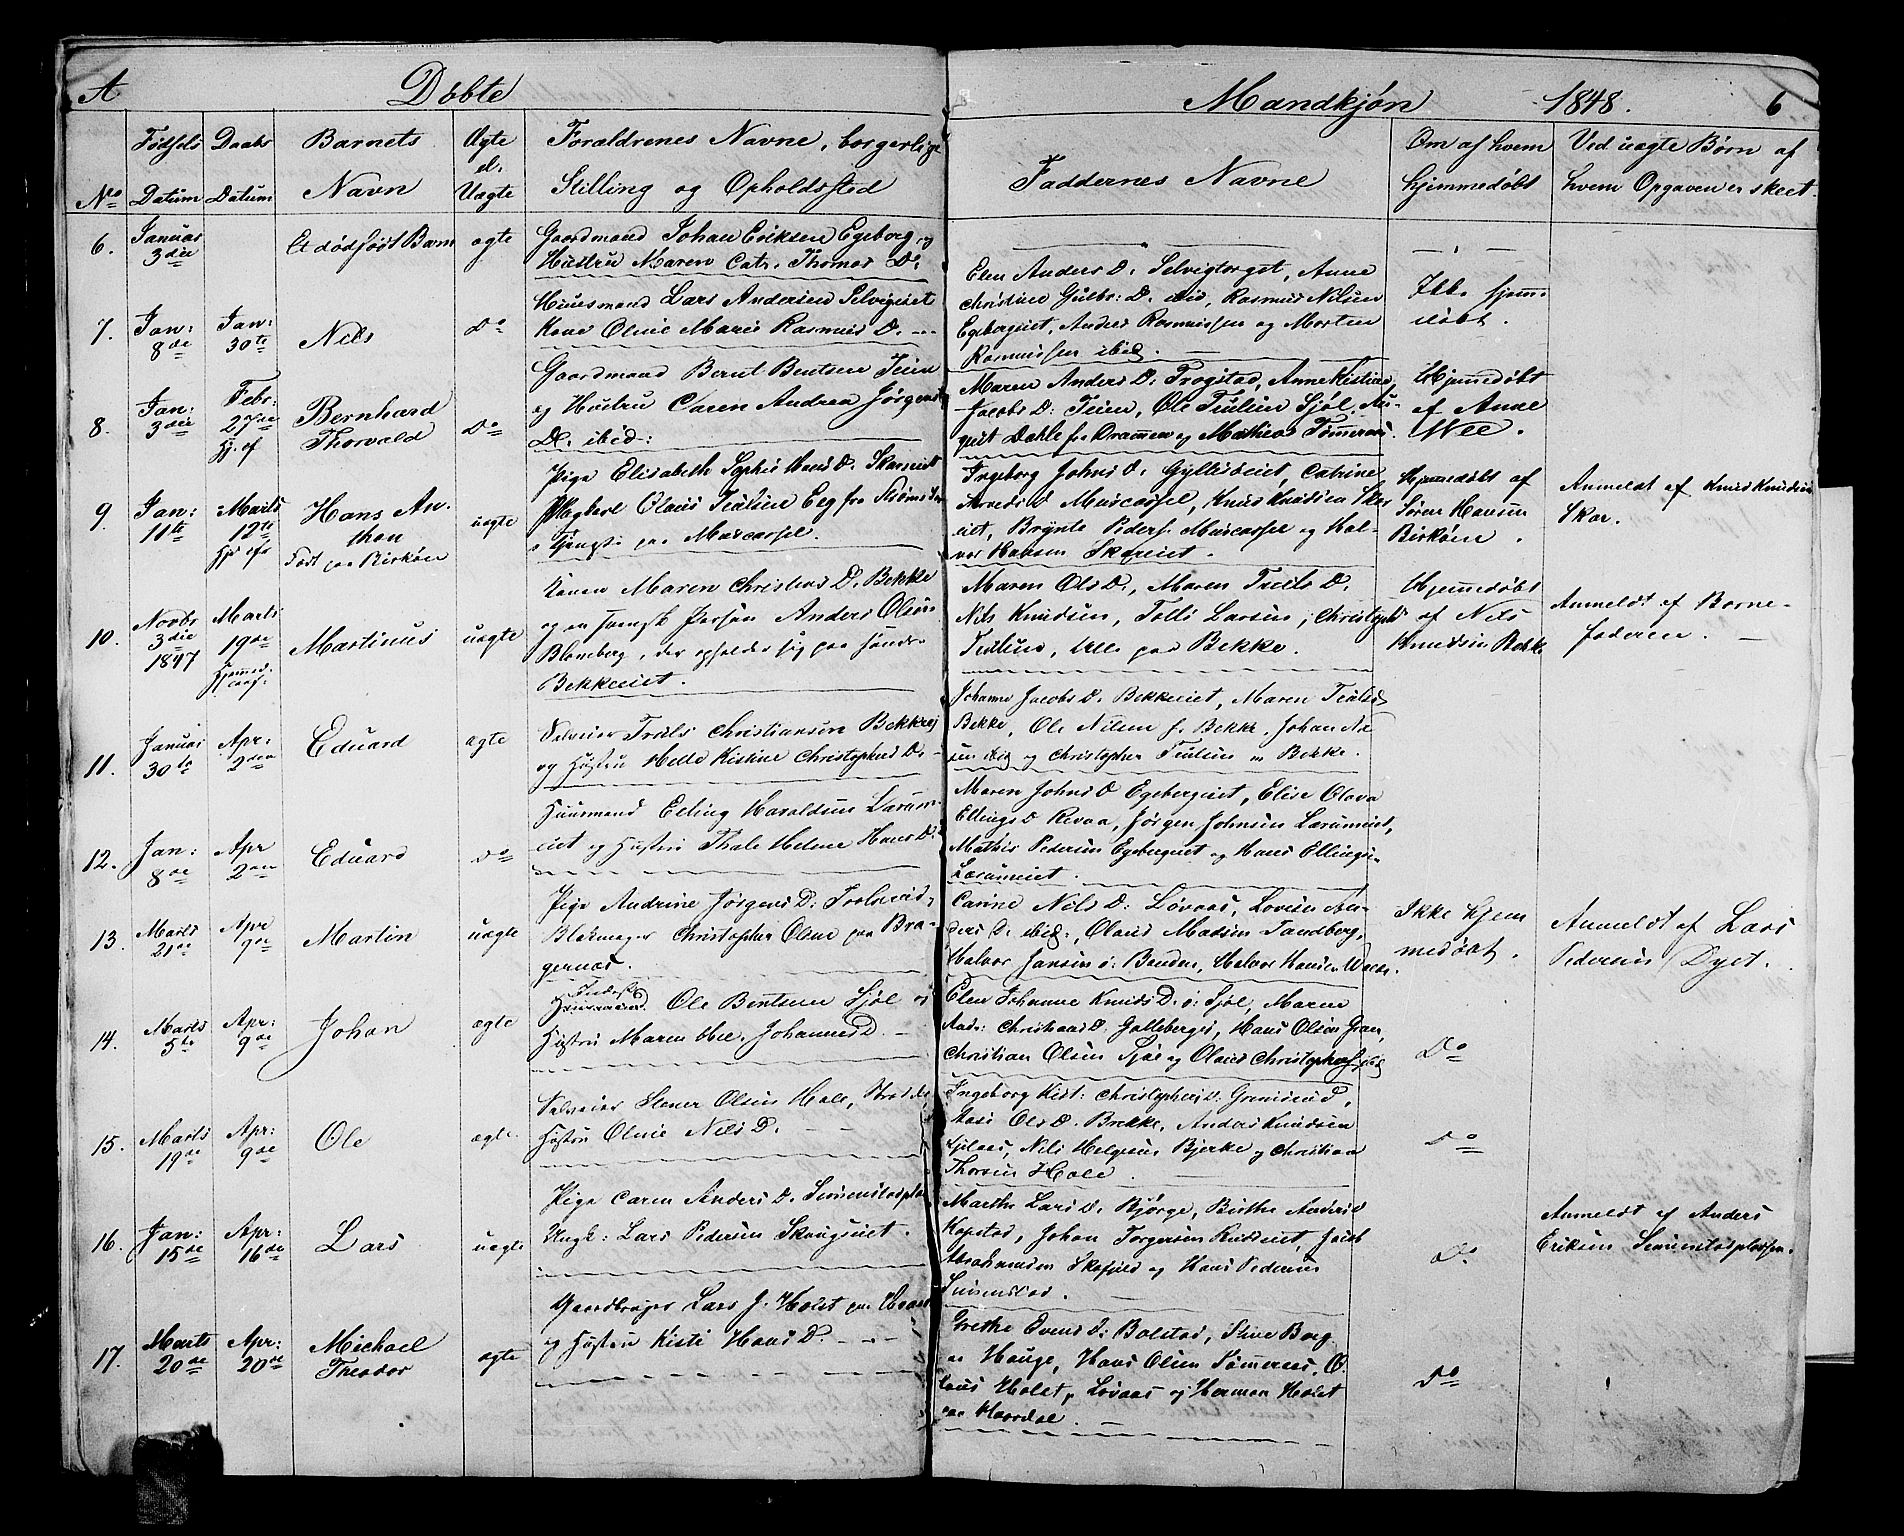 A Døbte Mandkjøn 1848. 6
No
Fødsels Datum
Daabs Datum
Barnets Navn
Ægte el. Uægte
Forældrenes Navne, borgerlige
Stilling og Opholdssted
Faddernes Navne
Om af hvem
hjemmedøbt
Ved uægte Børn af
hvem Opgaven er skeet.
6.
Januar
3die
Et dødfødt Barn
ægte
Gaardmand Johan Eriksen Egeberg og
Hustru Maren Catr. Thomas D.
7.
Jan:
8de
Jan:
30te
Nils
Do
Huusmand Lars Andersen Selvigeiet
Kone Oline Marie Rasmus D.
Elen Anders D. Selvigtorget, Anne
Christine Gulbr: D. ibid, Rasmus Nilsen
Egebergeiet, Anders Rasmussen og Morten
Rasmussen ibid.
Ikke hjem-
døbt.
8.
Jan:
3die
Febr:
27de
Hj. af
Bernhard
Thorvald
Do
Gaardmand Bernt Bentsen Teien
og Hustru Caren Andrea Jørgens
D. ibid:
Maren Anders D. Frogstad, Anne Kistine
Jacobs D. Teien, Ole Iulsen Sjøl, Au-
gust Dahle fra Drammen og Mathias Tømmeraas.
Hjemmedøbt
af Anne
Moe.
9.
Jan:
11te
Marts
12te
Hans An-
thon
Født paa Birkøen
uægte
Pige Elisabeth Sophie Hans D. Skareiet
Ungkarl Olaus Iulsen Eeg fra Strømsøe
i Tjeneste paa Muscarsel.
Ingeborg Johns D. Gyllieiet, Catrine
Arveds D. Muscarsel, Knud Knudsen Skar-
eiet, Brynte Peders. Muscarsel og Hal-
vor Hansen Skareiet.
Hjemmedøbt af
Søren Hansen
Birkøen.
Anmeldt af Knud Knudsen
Skar.
10.
Novbr
3die
1847
Marts
19de
Martinus
uægte
Konen Maren Christens D. Bekke
og en svensk Person Anders Olsen
Blomberg, der opholder sig paa Søndre
Bekkeeiet.
Maren Ols D., Maren Truls D.
Nils Knudsen, Tolli Larsen, Christoph
Iulsen, Alle paa Bekke.
Hjemmedøbt
af Nils
Knudsen Bekke
Anmeldt af Barne-
faderen.
11.
Januar
30te
Apr:
2den
Eduard
ægte
Selveier Truls Christiansen Bekke
og Hustru Helle Kistine Christophers D.
Johanne Jacobs D. Bekkeeiet, Maren Iulsd.
Bekke, Ole Nilsen f. Bekke, Johan An-
sen ibid og Christopher Iulsen Bekke.
12.
Jan:
8de
Apr
2den
Eduard
Do
Huusmand Elling Haraldsen Larum-
eiet og Hustru Thale Helene Hans D.
Maren Johns D Egebergeiet, Elise Olava
Ellings D Revaa, Jørgen Johnsen Larumeiet,
Mathis Pedersen Egebergeiet og Hans Ellings.
Larumeiet.
13.
Marts
21de
Apr
9de
Martin
uægte
Pige Andrine Jørgens D:
Christopher Olsen paa Bra-
gernæs.
Carine Nils D: Løvaas, Lovise An-
ders D. ibid:, Olaus Madsen Sandberg,
Halvor Jansen
Ikke hjem
medøbt.
Anmeldt af Lars
Pedersen Dyet.
14.
Marts
5te
Apr:
9de
Johan
ægte
Inderst
Ole Bentsen Sjøl og
Hustru Maren Johannes D.
Elen Johanne Knuds D. Sjøl, Maren
Andr: Christians D. Galleberget, Hans Olsen Gran,
Christian Olsen Sjøl og Olaus Christophers. ibid
Do
15.
Marts
19de
Apr:
9de
Ole
ægte.
Selveier Stener Olsen Hale,
Hustru Olene Nils D.
Ingeborg Kist: Christophers D. Grimsrud,
Aase Ols D. Brekke, Anders Knudsen
Nils Helgesen Bjerke og Christian
Thorsen Hole.
Do
16.
Jan:
15de
Apr:
16de
Lars
uægte
Pige Caren Anders D. Simenstadpladsen
Ungk: Lars Pedersen Skougeiet.
Marthe Lars D. Bjørge, Birthe Anders D
Kopstad, Johan Torgersen Knudseiet, Jacob
Abrahamsen Skafjeld og Hans Pedersen
Simenstad.
Do.
Anmeldt af Anders
Eriksen Simenstadpladsen.
17.
Marts
20de
Apr:
20de
Michael
Theodor
ægte
Gaardbruger Lars J. Holst paa
og Hustru Kisti Hans D.
Grethe Evens D: Bolstad, Stine Borg
Hauge, Hans Olsen Tømmeraas, O-
laus Holst, Løvaas og Herman Holst
paa Haardal.
Do